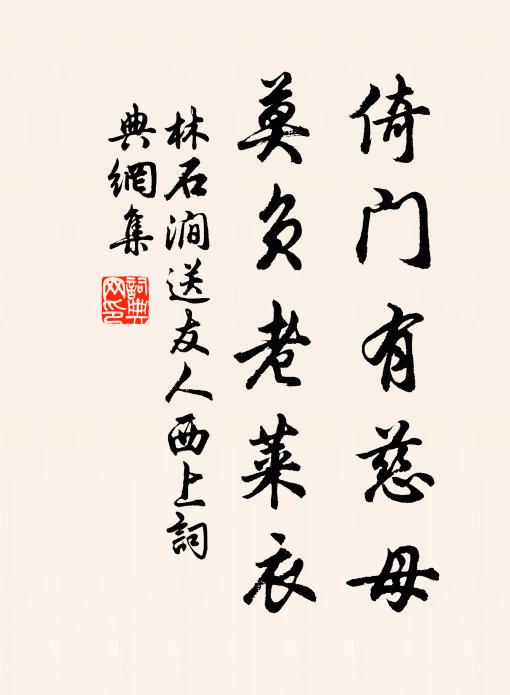 倚门有慈母
莫负老莱衣
林石涧送友人西上詞
典網集
詞典网印